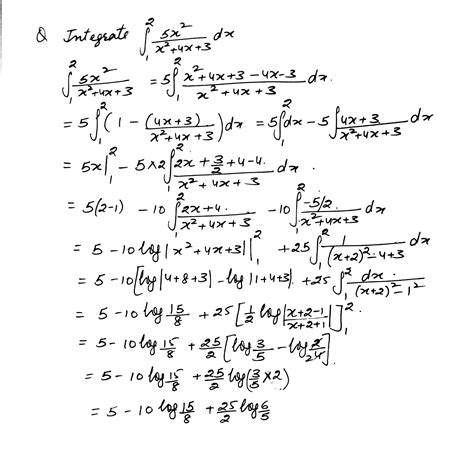 Q Integrate ∫₁² 5x²/(x²+4x+3) dx
∫₁² 5x²/(x²+4x+3) = 5∫₁² (x²+4x+3-4x-3)/(x²+4x+3) dx
= 5∫₁² (1 - (4x+3)/(x²+4x+3)) dx = 5∫₁² dx - 5∫₁² (4x+3)/(x²+4x+3) dx
= 5x|₁² - 5×2∫₁² (2x + 3/2 + 4-4)/(x²+4x+3) dx.
= 5(2-1) - 10∫₁² (2x+4)/(x²+4x+3) - 10∫₁² (-5/2)/(x²+4x+3) dx
= 5 - 10 log|x²+4x+3||₁² + 25∫₁² 1/((x+2)²-4+3) dx
= 5 - 10[log|4+8+3| - log|1+4+3| + 25∫₁² dx/((x+2)²-1²)
= 5 - 10 log 15/8 + 25[1/2 log|(x+2-1)/(x+2+1)|]₁²
= 5 - 10 log 15/8 + 25/2 [log 3/5 - log 2/4]
= 5 - 10 log 15/8 + 25/2 log(3/5 × 2)
= 5 - 10 log 15/8 + 25/2 log 6/5